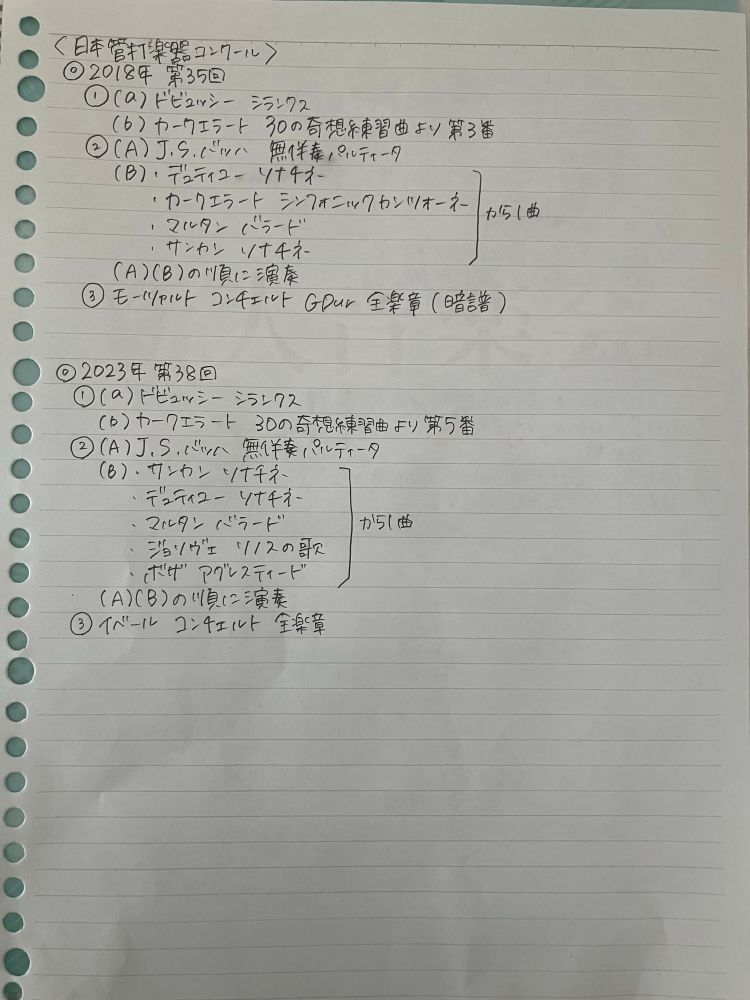 〈日本管打楽器コンクール〉
◎2018年 第35回
①(a)ドビュッシー シランクス
(b)カークエラート 30の奇想練習曲より 第3番
②(A)J.S.バッハ 無伴奏パルティータ
(B)・デュティユー ソナチネ
・カークエラート シンフォニックカンツォーネ
・マルタン バラード
・サンカン ソナチネ
から1曲
(A)(B)の順に演奏
③モーツァルト コンチェルト GDur 全楽章(暗譜)
◎2023年 第38回
①(a)ドビュッシー シランクス
(b)カークエラート 30の奇想練習曲より 第5番
②(A)J.S.バッハ 無伴奏パルティータ
(B)・サンカン ソナチネ
・デュティユー ソナチネ
・マルタン バラード
・ジョリヴェ リノスの歌
・ボザ アグレスティード
から1曲
(A)(B)の順に演奏
③イベール コンチェルト 全楽章